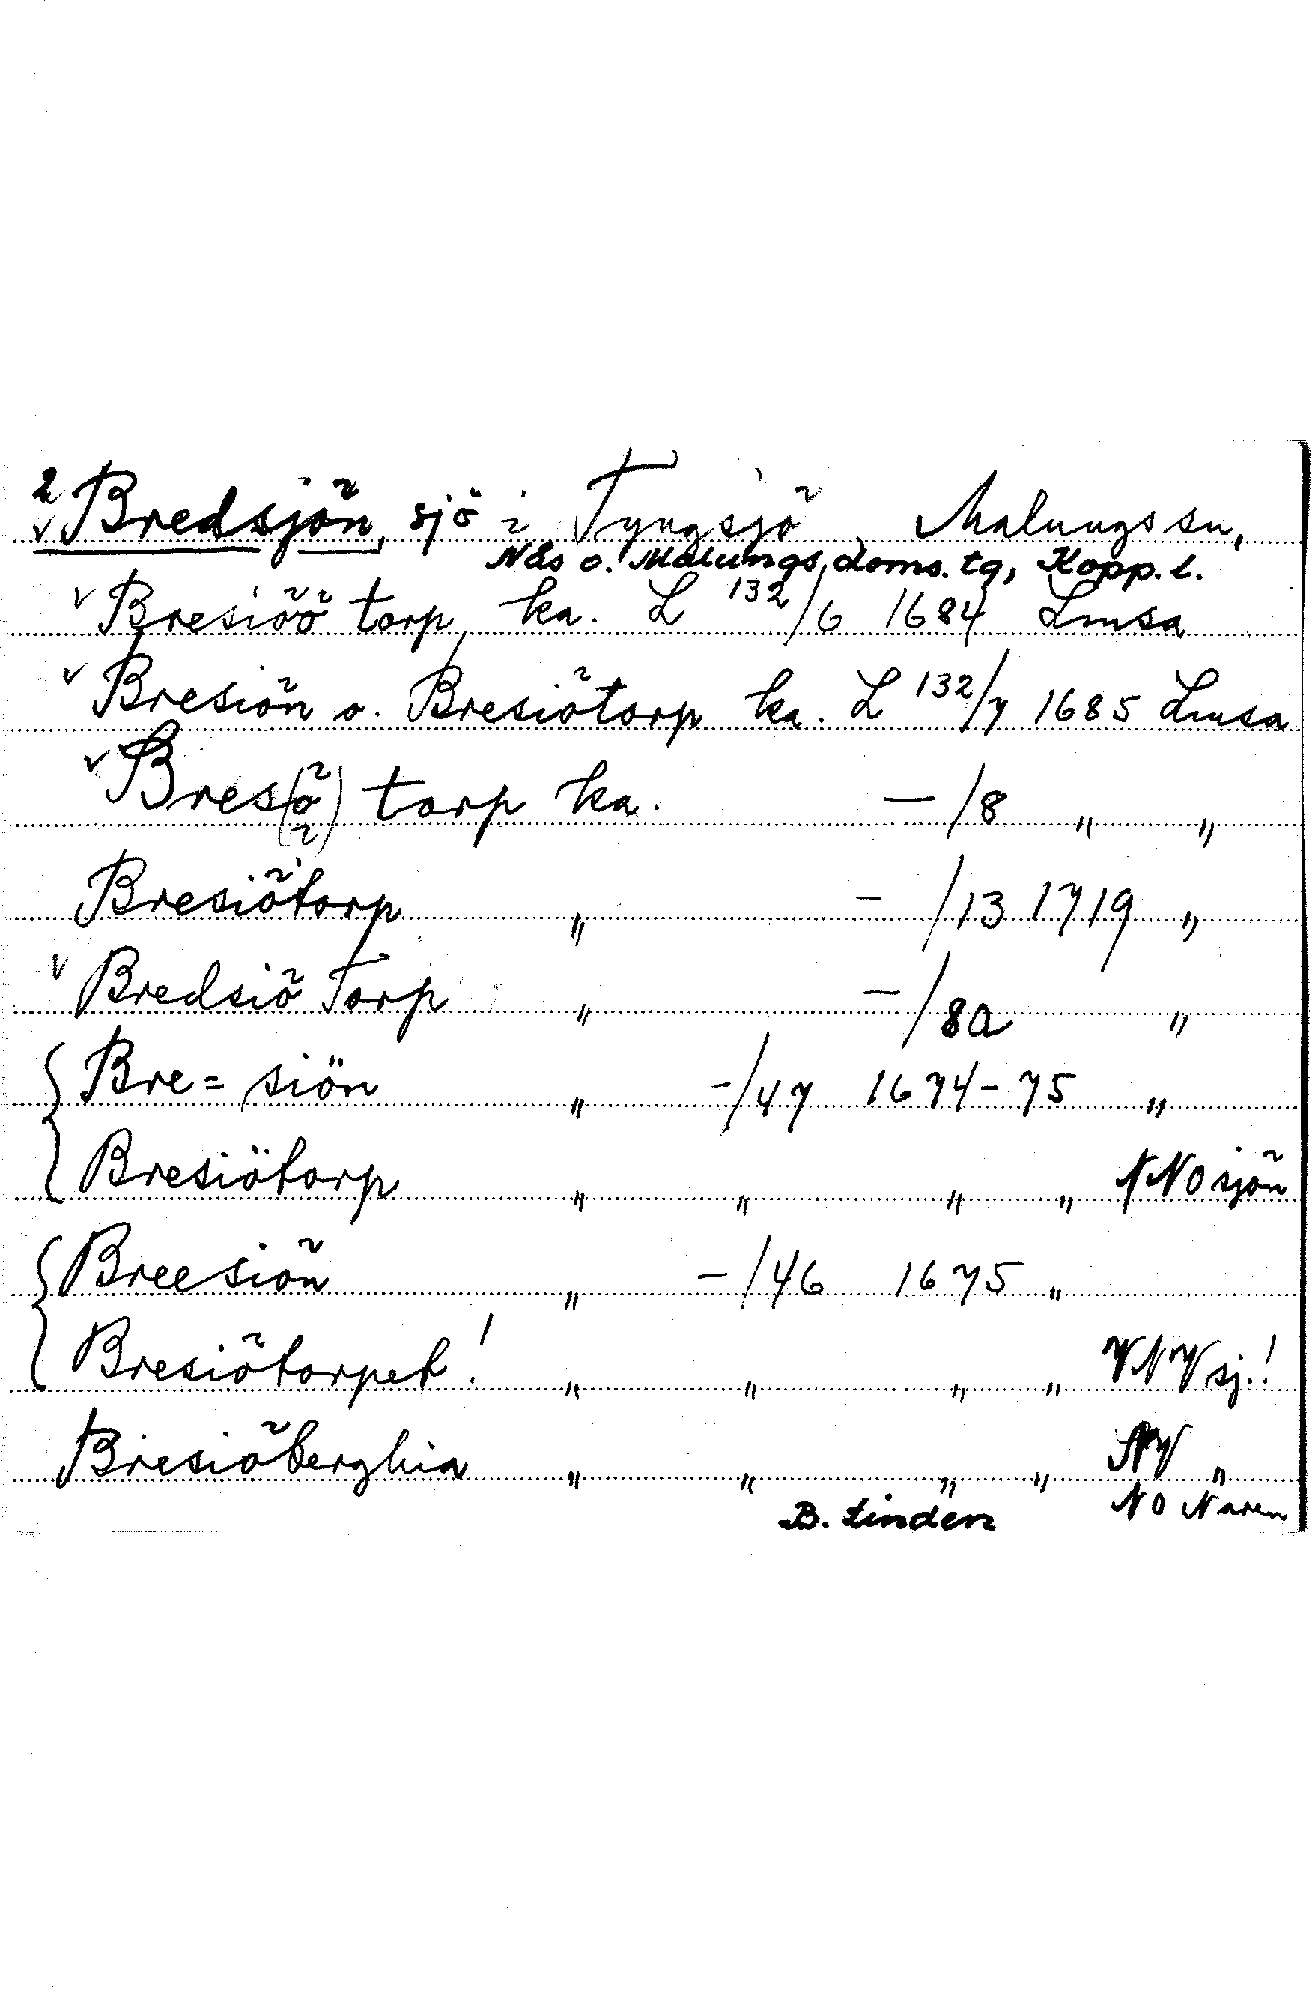 2 Bredsjön, sjö i Tyngsjö, Malungs sn,
Nås o. Malungs doms. tg, Kopp. l.
Bresiöö torp ka. L 132/6 1684 Lmsa
Bresiön o. Bresiötorp ka. L 132/7 1685 Lmsa
Bres(ö) torp ka. — /8 " "
Bresiötorp " — /13 1719 "
Bredsiö Torp " — /8a "
Bre= siön " —/47 1674-75 "
Bresiötorp " " " " NNO sjön
Breesiön " —/46 1675 "
Bresiötorpet! " " " " VNV sj.!
Bresiöberghia " " " " NV "
B. Linden NO Naren